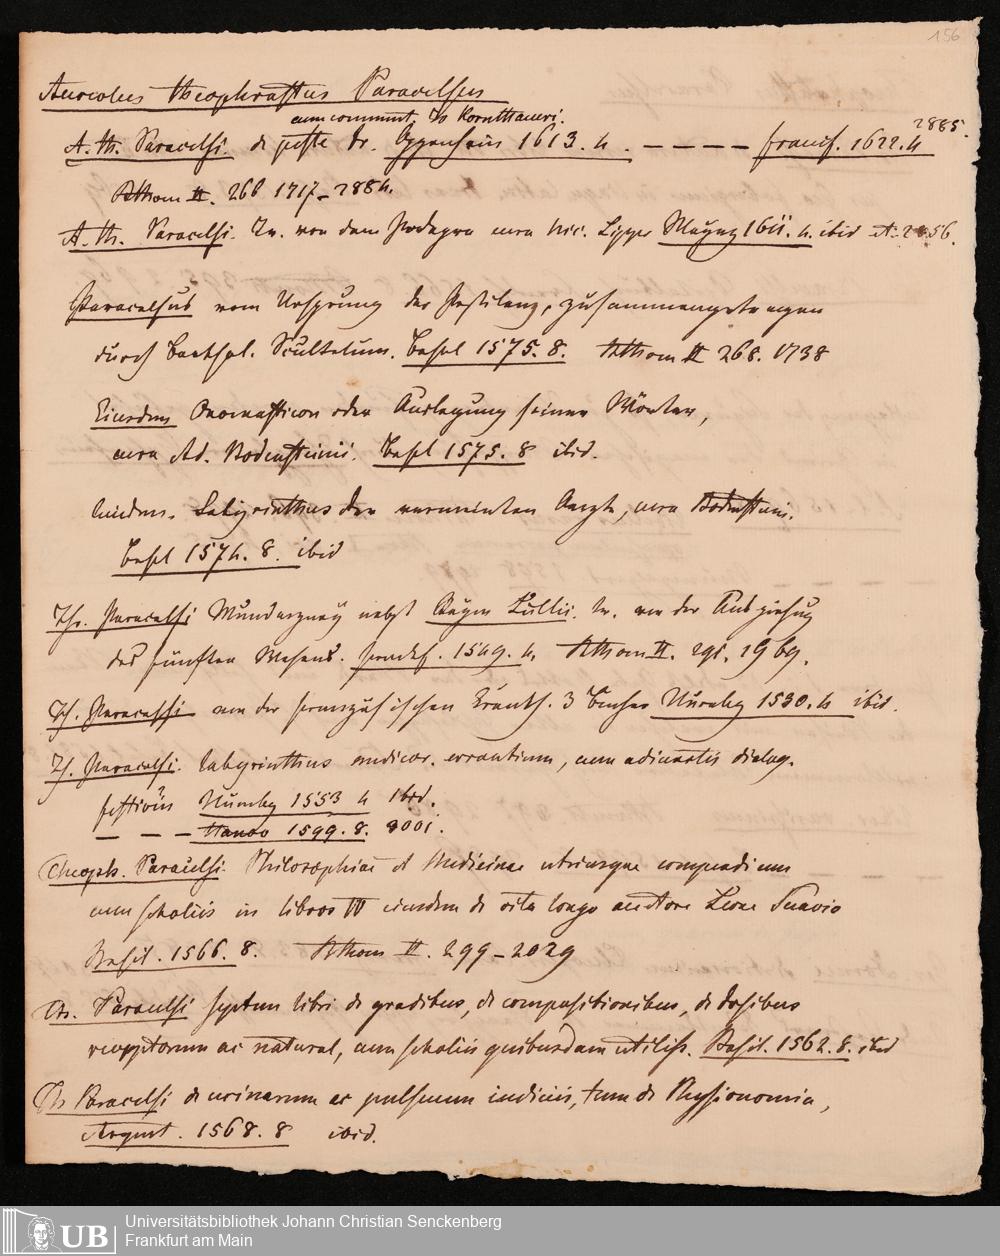 156
Aureolus Theophrastus Paracelsus
cum comment. Is Kornthaueri.
2885.
A. Th. Paracelsi de peste Tr. Oppenheim 1613. 4. – – – – francf. 1622. 4
Rthom II. 268 1717 – 2884.
A. Th. Paracelsi. Tr. von dem Podagra cura Nic. Lipper Maynz 1611. 4. ibid
Paracelsus vom Ursprung der Pestilenz, zusammengetragen
durch Barthol. Scultetum. Basel 1575. 8. Rthom II 268. 1738
Eiusdem Onomasticon oder Auslegung seiner Wörter,
cura Ad. Bodensteinii. Basel 1575. 8 ibid.
Eiusdem. Labyrinthus der vermeinten Aerzte, cura Bodensteini.
Basel 1574. 8. ibid
Th. Paracelsi Wundarzney nebst Lullii. Tr. von der Ausziehung
des fünften Wesens. 1549. 4. Rthom II. 291. 1969.
Th. Paracelsi von der französischen Krankh. 3 Bücher Nürnbg 1530. 4 ibid.
Th. Paracelsi. Labyrinthus medicor. errantium, cum adiunctis dialog.
Nürnbg 1553 4 ibid.
– – – Hanov 1599. 8. 3001.
Theoph. Paracelsi. Philosophiae et Medicinae utriusque compendium
cum scholiis in libros IV eiusdem de vita longa auctore Leone Suavio
Basil. 1566. 8. Rthom II. 299 – 2029
Th. Paracelsi septem libri de gradibus, de compositionibus, de dosibus
receptorum ac natural, cum scholiis quibusdam utiliss. Basil. 1562. 8. ibid
Th Paracelsi de urinarum ac pulsuum iudiciis, tum de Physionomia,
Argent. 1568. 8 ibid.
UB
Universitätsbibliothek Johann Christian Senckenberg
Frankfurt am Main